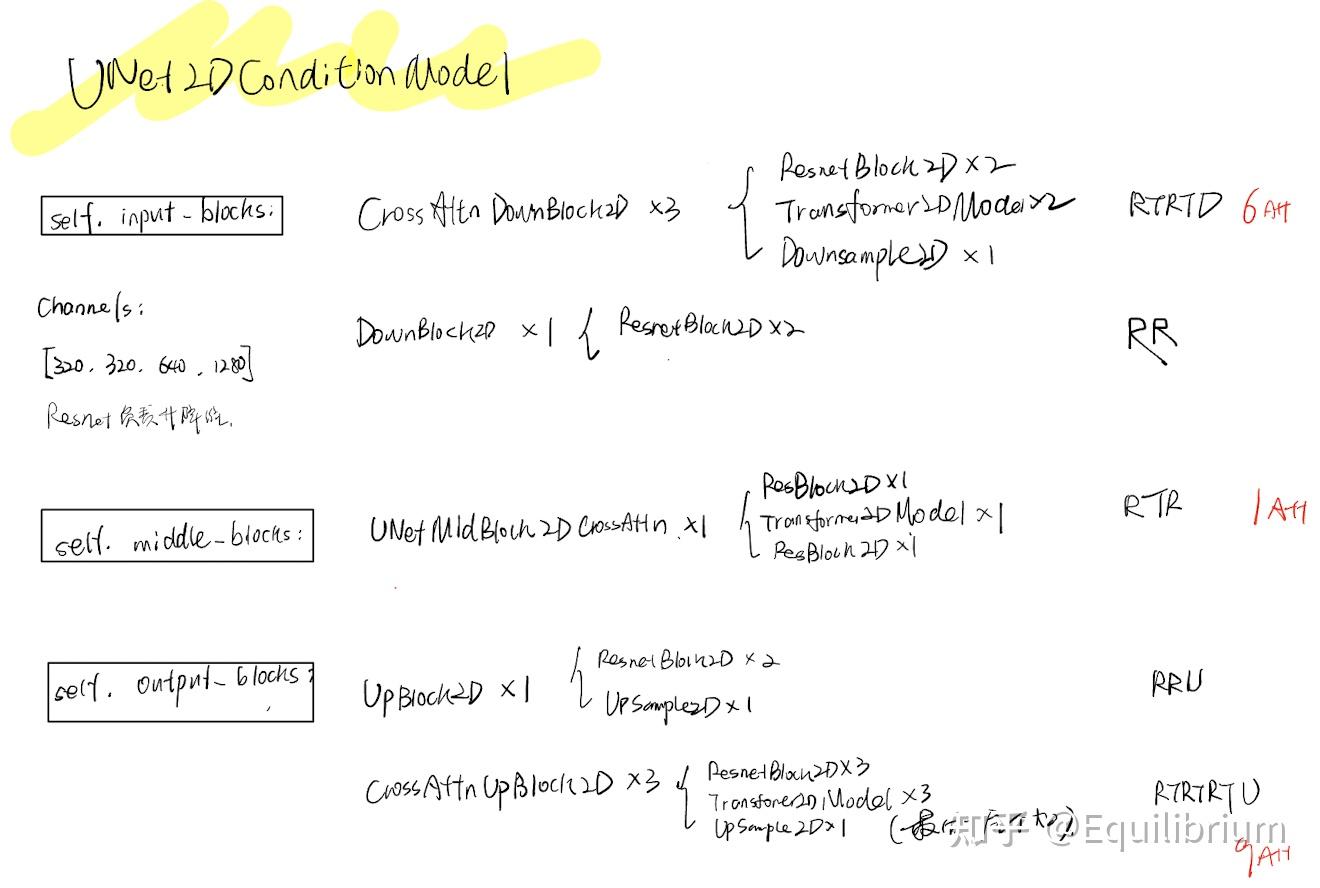 UNet2DConditionModel
self. input_blocks: CrossAttnDownBlock2D ×3 { ResnetBlock2D×2
Transformer2DModel×2 RTRTD 6Att
Downsample2D ×1
Channels: DownBlock2D ×1 { ResnetBlock2D×2 RR
[320, 320, 640, 1280]
Resnet 负责升降
self. middle_blocks: UNetMidBlock2DCrossAttn ×1 { ResBlock2D×1
Transformer2DModel ×1 RTR 1Att
ResBlock2D×1
self. output_blocks: UpBlock2D ×1 { ResnetBlock2D ×2 RRU
UpSample2D×1
CrossAttnUpBlock2D ×3 { ResnetBlock2D×3
Transformer2DModel ×3 RTRTRTU
UpSample2D×1
知乎 @Equilibrium
9Att